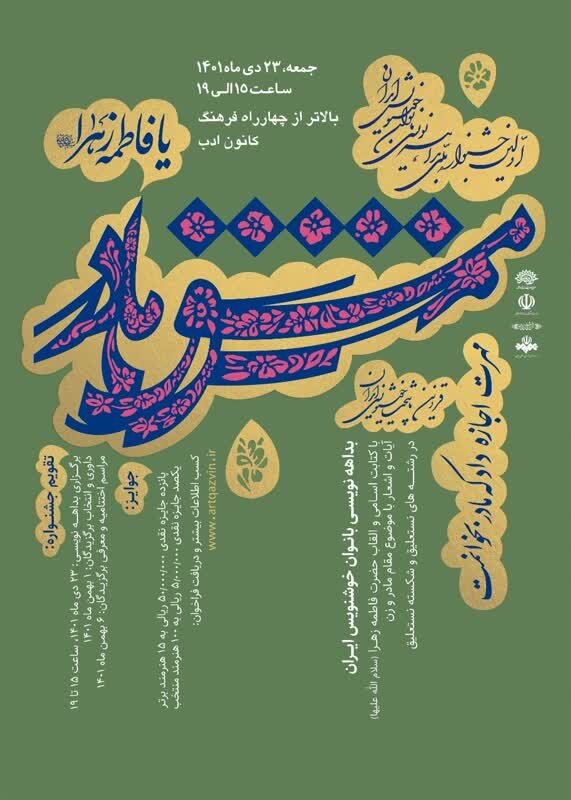 جمعه، ۲۳ دی ماه ۱۴۰۱
ساعت ۱۵ الی ۱۹
بالاتر از چهارراه فرهنگ
کانون ادب
اولین جشنواره ملی
بانوان خوشنویس ایران
یا فاطمه زهرا
مشق مادر
مهرت اجازه داد که مادر بخوانمت
قزوین پایتخت خوشنویسی ایران
بداهه نویسی بانوان خوشنویس ایران
با کتابت اسامی و القاب حضرت فاطمه زهرا (سلام الله علیها)
آیات و اشعار با موضوع مقام مادر و زن
در رشته های نستعلیق و شکسته نستعلیق
کسب اطلاعات بیشتر و دریافت فراخوان:
www.artqazvin.ir
جوایز:
پانزده جایزه نقدی ۵۰/۰۰۰/۰۰۰ ریالی به ۱۵ هنرمند برتر
یکصد جایزه نقدی ۵/۰۰۰/۰۰۰ ریالی به ۱۰۰ هنرمند منتخب
تقویم جشنواره:
برگزاری بداهه نویسی: ۲۳ دی ماه ۱۴۰۱، ساعت ۱۵ تا ۱۹
داوری و انتخاب برگزیدگان: ۱ بهمن ماه ۱۴۰۱
مراسم اختتامیه و معرفی برگزیدگان: ۶ بهمن ماه ۱۴۰۱